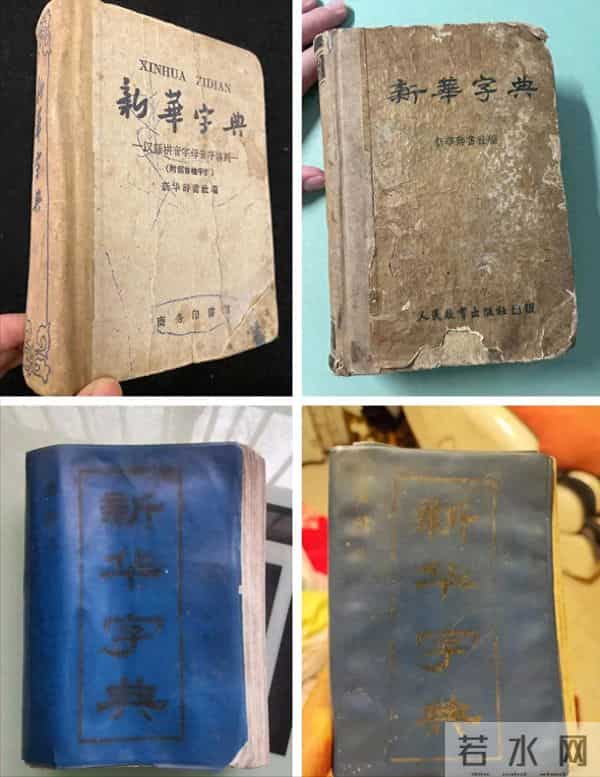 XINHUA ZIDIAN
新華字典
—汉語拼音字母音序排列—
(附部首檢字表)
新华辞書社編
商务印書館
新華字典
新華辞書社編
人民教育出版社出版
新
华
字
典
新
华
字
典
若水网